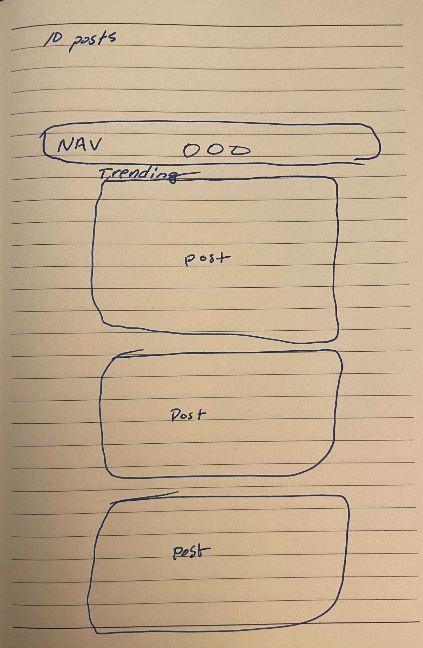 10 posts
NAV
Trending
post
Post
post